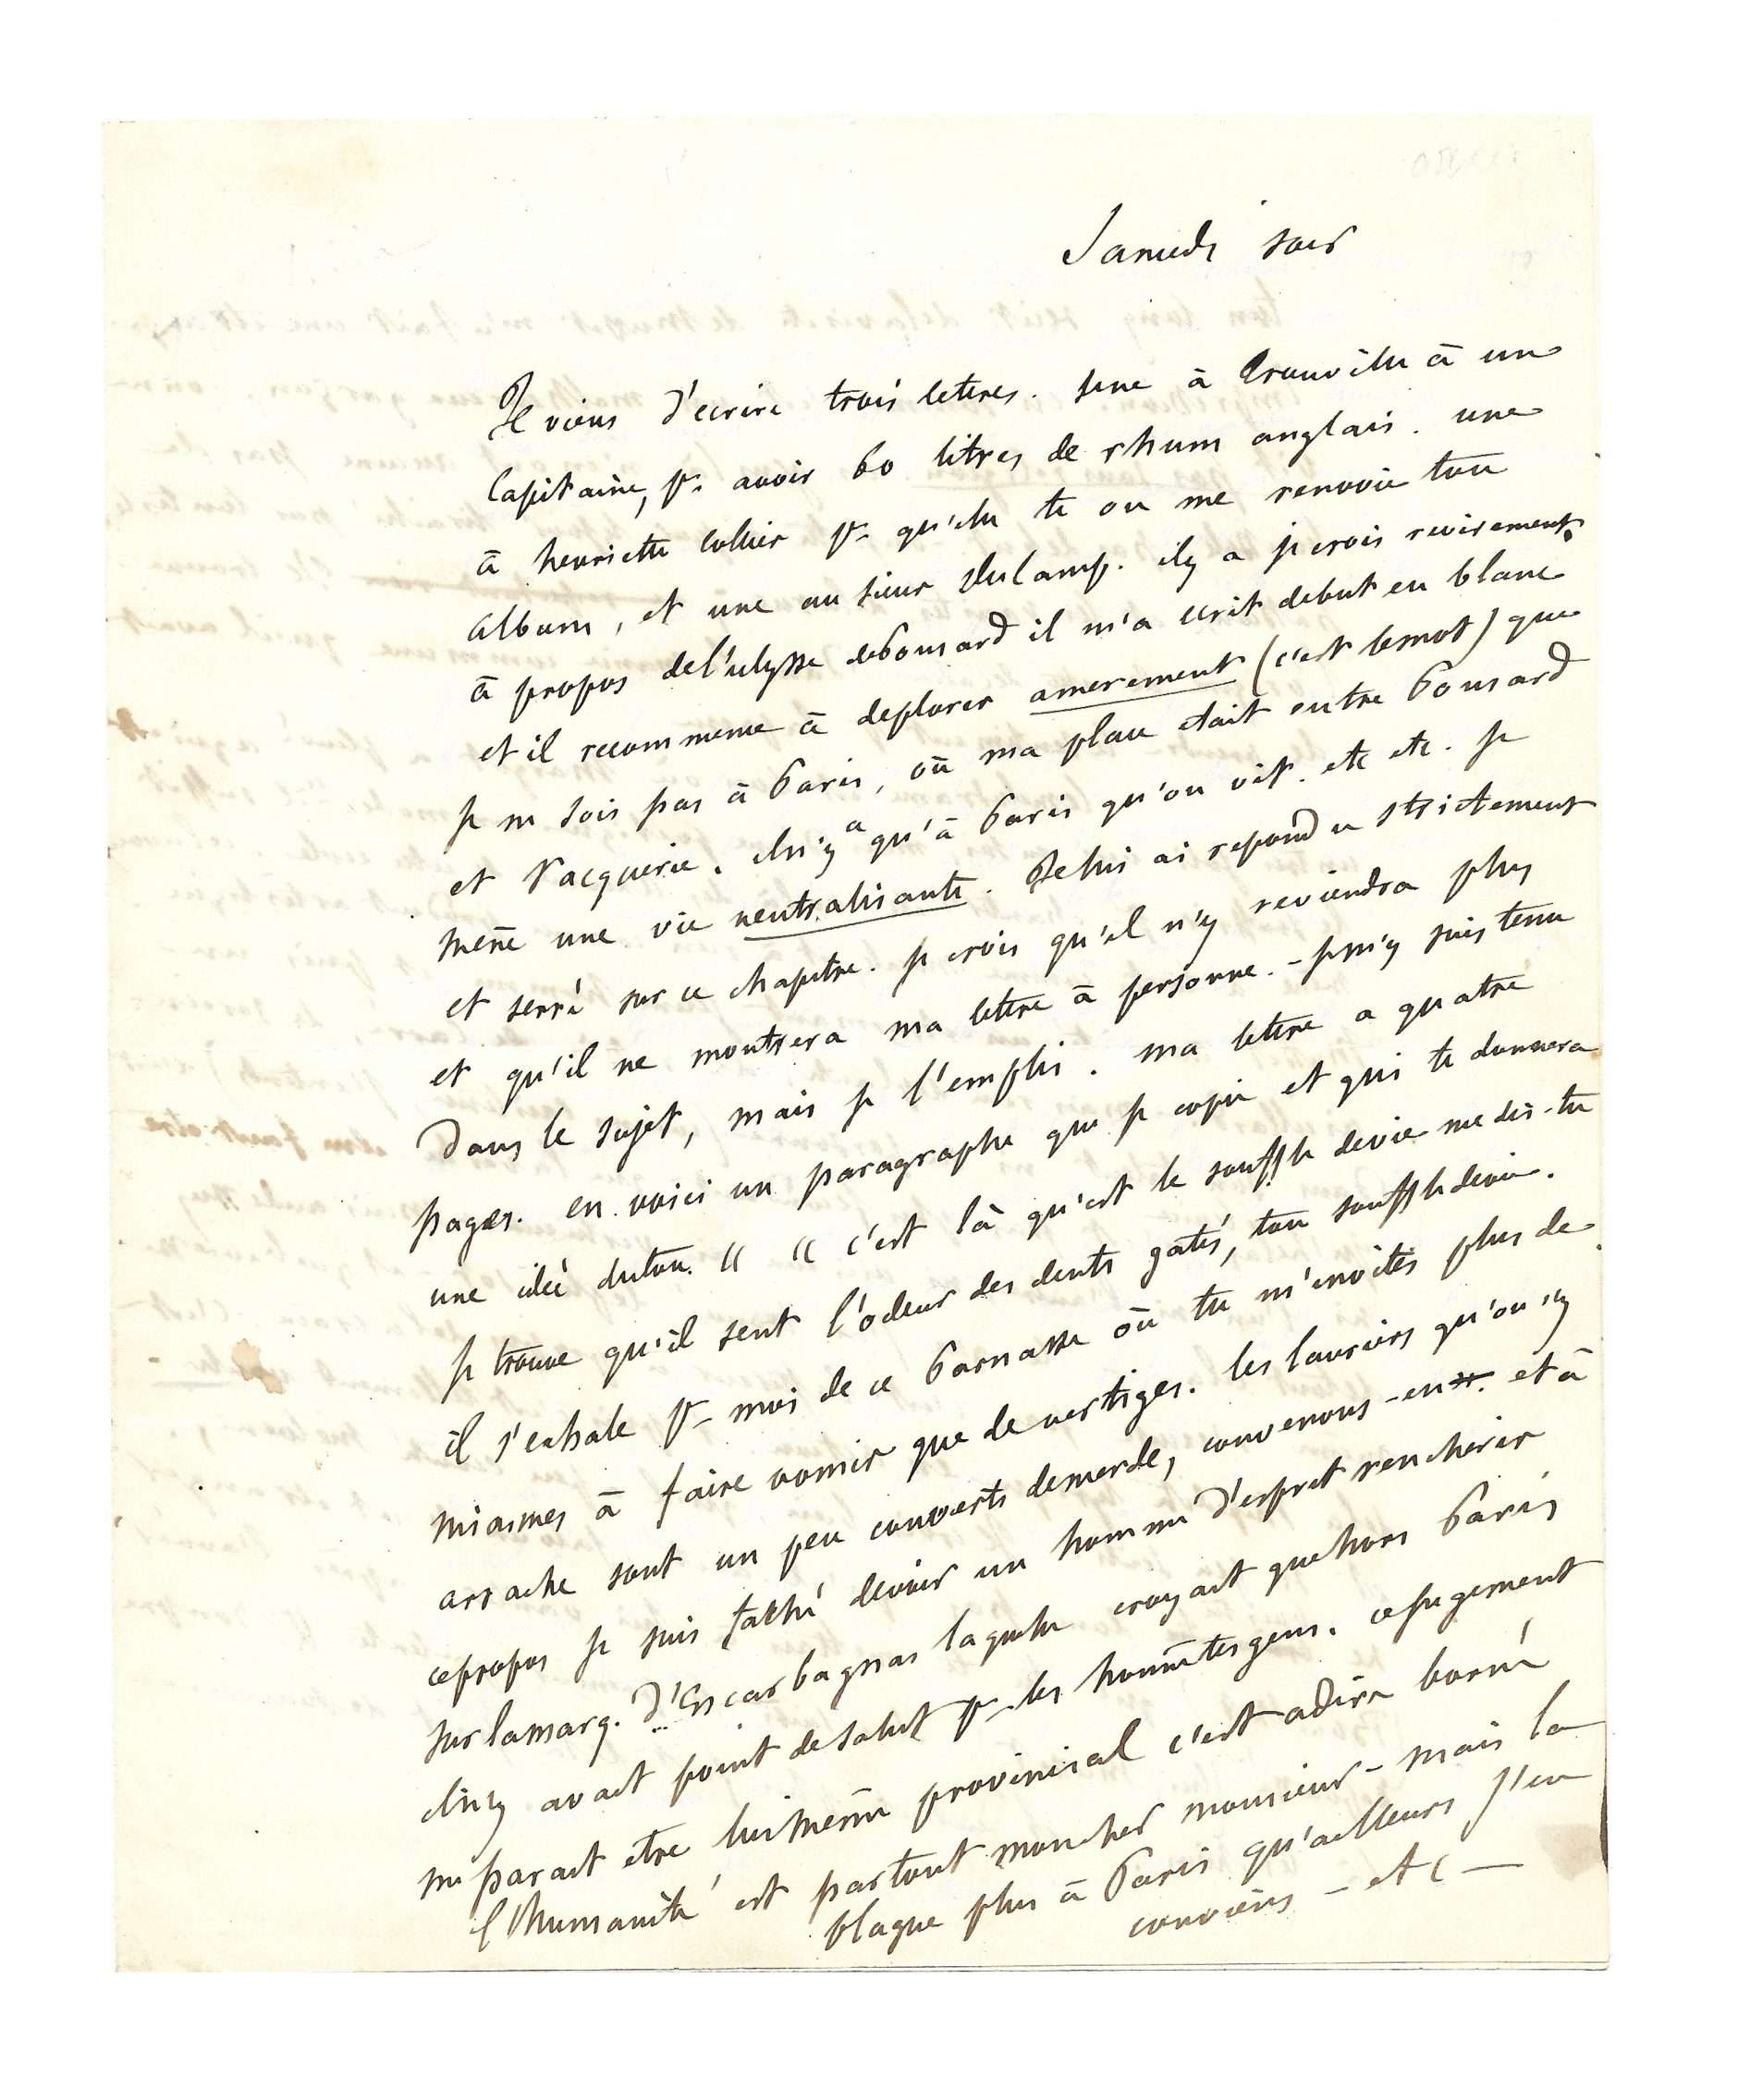 Samedi soir
Je viens d'ecrire trois lettres. l'une à Trouville à un
Capitaine, pr. avoir 60 litres de rhum anglais. une
à henriette Collier pr qu'elle te ou me renvoie ton
album, et une au sieur Du Camp. il y a je crois revirement
à propos de l'ulysse de Ponsard il m'a écrit de but en blanc
et il recommence à deplorer amerement (c'est le mot) que
je ne sois pas à Paris, où ma place etait entre Ponsard
et Vacquerie. il n'y a qu'à Paris qu'on vit. etc etc. je
mène une vie neutralisante. Je lui ai repondu strictement
et serré sur ce chapitre. je crois qu'il n'y reviendra plus
et qu'il ne montrera ma lettre à personne. - je m'y suis tenu
Dans le sujet, mais je l'emplis. ma lettre a quatre
pages. en voici un paragraphe que je copie et qui te donnera
une idée du ton. « « c'est là qu'est le souffle de vie me dis-tu
je trouve qu'il sent l'odeur des dents gatés, ton souffle de vie.
il s'exhale pr moi de ce Parnasse où tu m'invites plus de
miasmes à faire vomir que de vertiges. les lauriers qu'on s'y
arrache sont un peu couverts de merde, convenons-en. et à
ce propos je suis faché de voir un homme d'esprit rencherir
sur la marq. D'Escarbagnas laquelle croyait que hors Paris
il n'y avait point de salut pr les honnêtes gens. ce jugement
me parait etre lui même provincial c'est a dire borné
l'humanité est partout mon cher monsieur - mais la
blague plus à Paris qu'ailleurs j'en
conviens - etc —